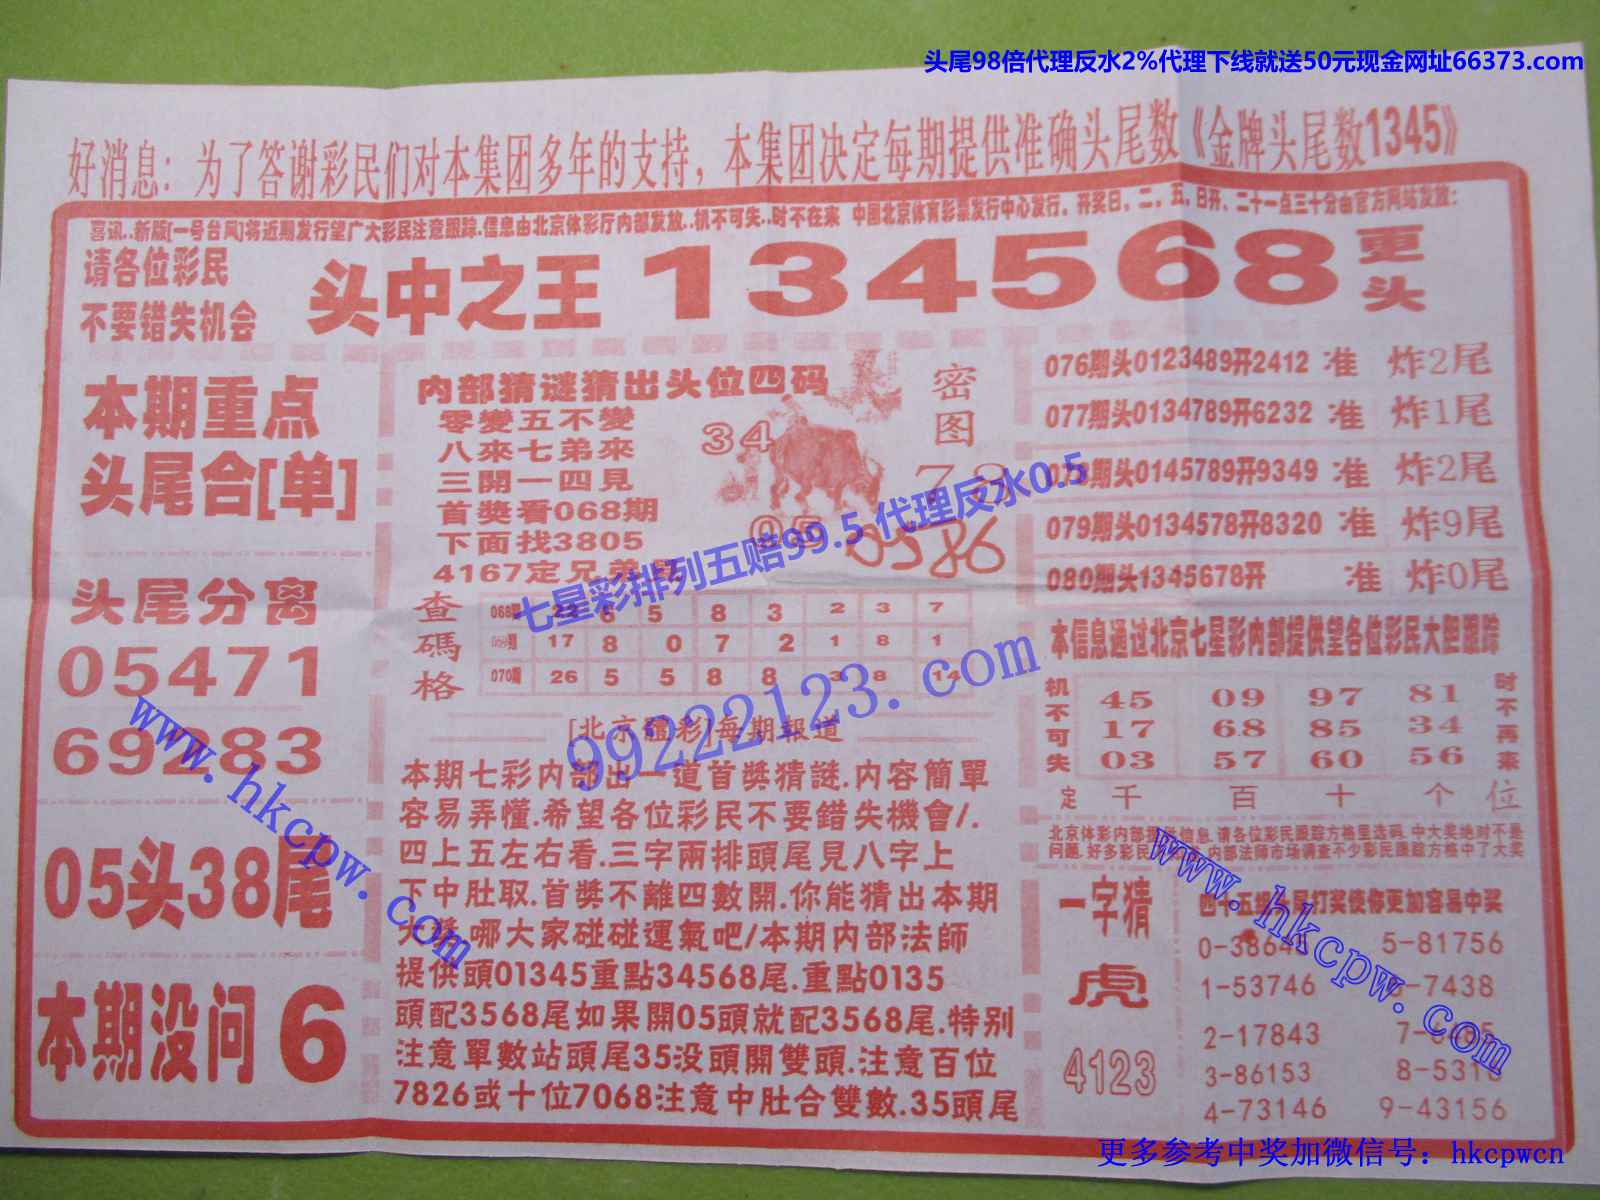 头尾98倍代理反水2%代理下线就送50元现金网址66373.com
好消息：为了答谢彩民们对本集团多年的支持，本集团决定每期提供准确头尾数《金牌头尾数1345》
喜讯..新版[一号台风]将近期发行望广大彩民注意跟踪.信息由北京体彩厅内部发放..机不可失..时不在来 中国北京体育彩票发行中心发行，开奖日、二，五，日开、二十一点三十分由官方网站发放：
请各位彩民
不要错失机会
头中之王 134568 更头
本期重点
头尾合[单]
头尾分离
05471
69283
05头38尾
本期没问6
内部猜谜猜出头位四码
零變五不變
八來七弟來
三開一四見
首獎看068期
下面找3805
4167定兄弟
密图
34
0586
七星彩排列五赔99.5 代理反水0.5
查碼格
068期 6 5 8 3 2 3 7
17 8 0 7 2 1 8 1
070期 26 5 5 8 8 3 8 14
[北京體彩]每期報道
本期七彩内部出一道首獎猜謎.内容簡單
容易弄懂.希望各位彩民不要錯失機會/.
四上五左右看.三字兩排頭尾見八字上
下中肚取.首獎不離四數開.你能猜出本期
哪大家碰碰運氣吧/本期内部法師
提供頭01345重點34568尾.重點0135
頭配3568尾如果開05頭就配3568尾.特别
注意單數站頭尾35没頭開雙頭.注意百位
7826或十位7068注意中肚合雙數.35頭尾
076期头0123489开2412 准 炸2尾
077期头0134789开6232 准 炸1尾
078期头0145789开9349 准 炸2尾
079期头0134578开8320 准 炸9尾
080期头1345678开 准 炸0尾
本信息通过北京七星彩内部提供望各位彩民大胆跟踪
机不可失
45 09 97 81
17 68 85 34
03 57 60 56
时不再来
定 千 百 十 个 位
北京体彩内部提供信息.请各位彩民跟踪方格里选码.中大奖绝对不是
问题.好多彩民 内部法师市场调查不少彩民跟踪方格中了大奖
一字猜
虎
4123
打奖使你更加容易中奖
5-81756
1-53746 7438
2-17843
3-86153
4-73146 9-43156
99222123.com
www.hkcpw.com
www.hkcpw.com
更多参考中奖加微信号：hkcpwcn